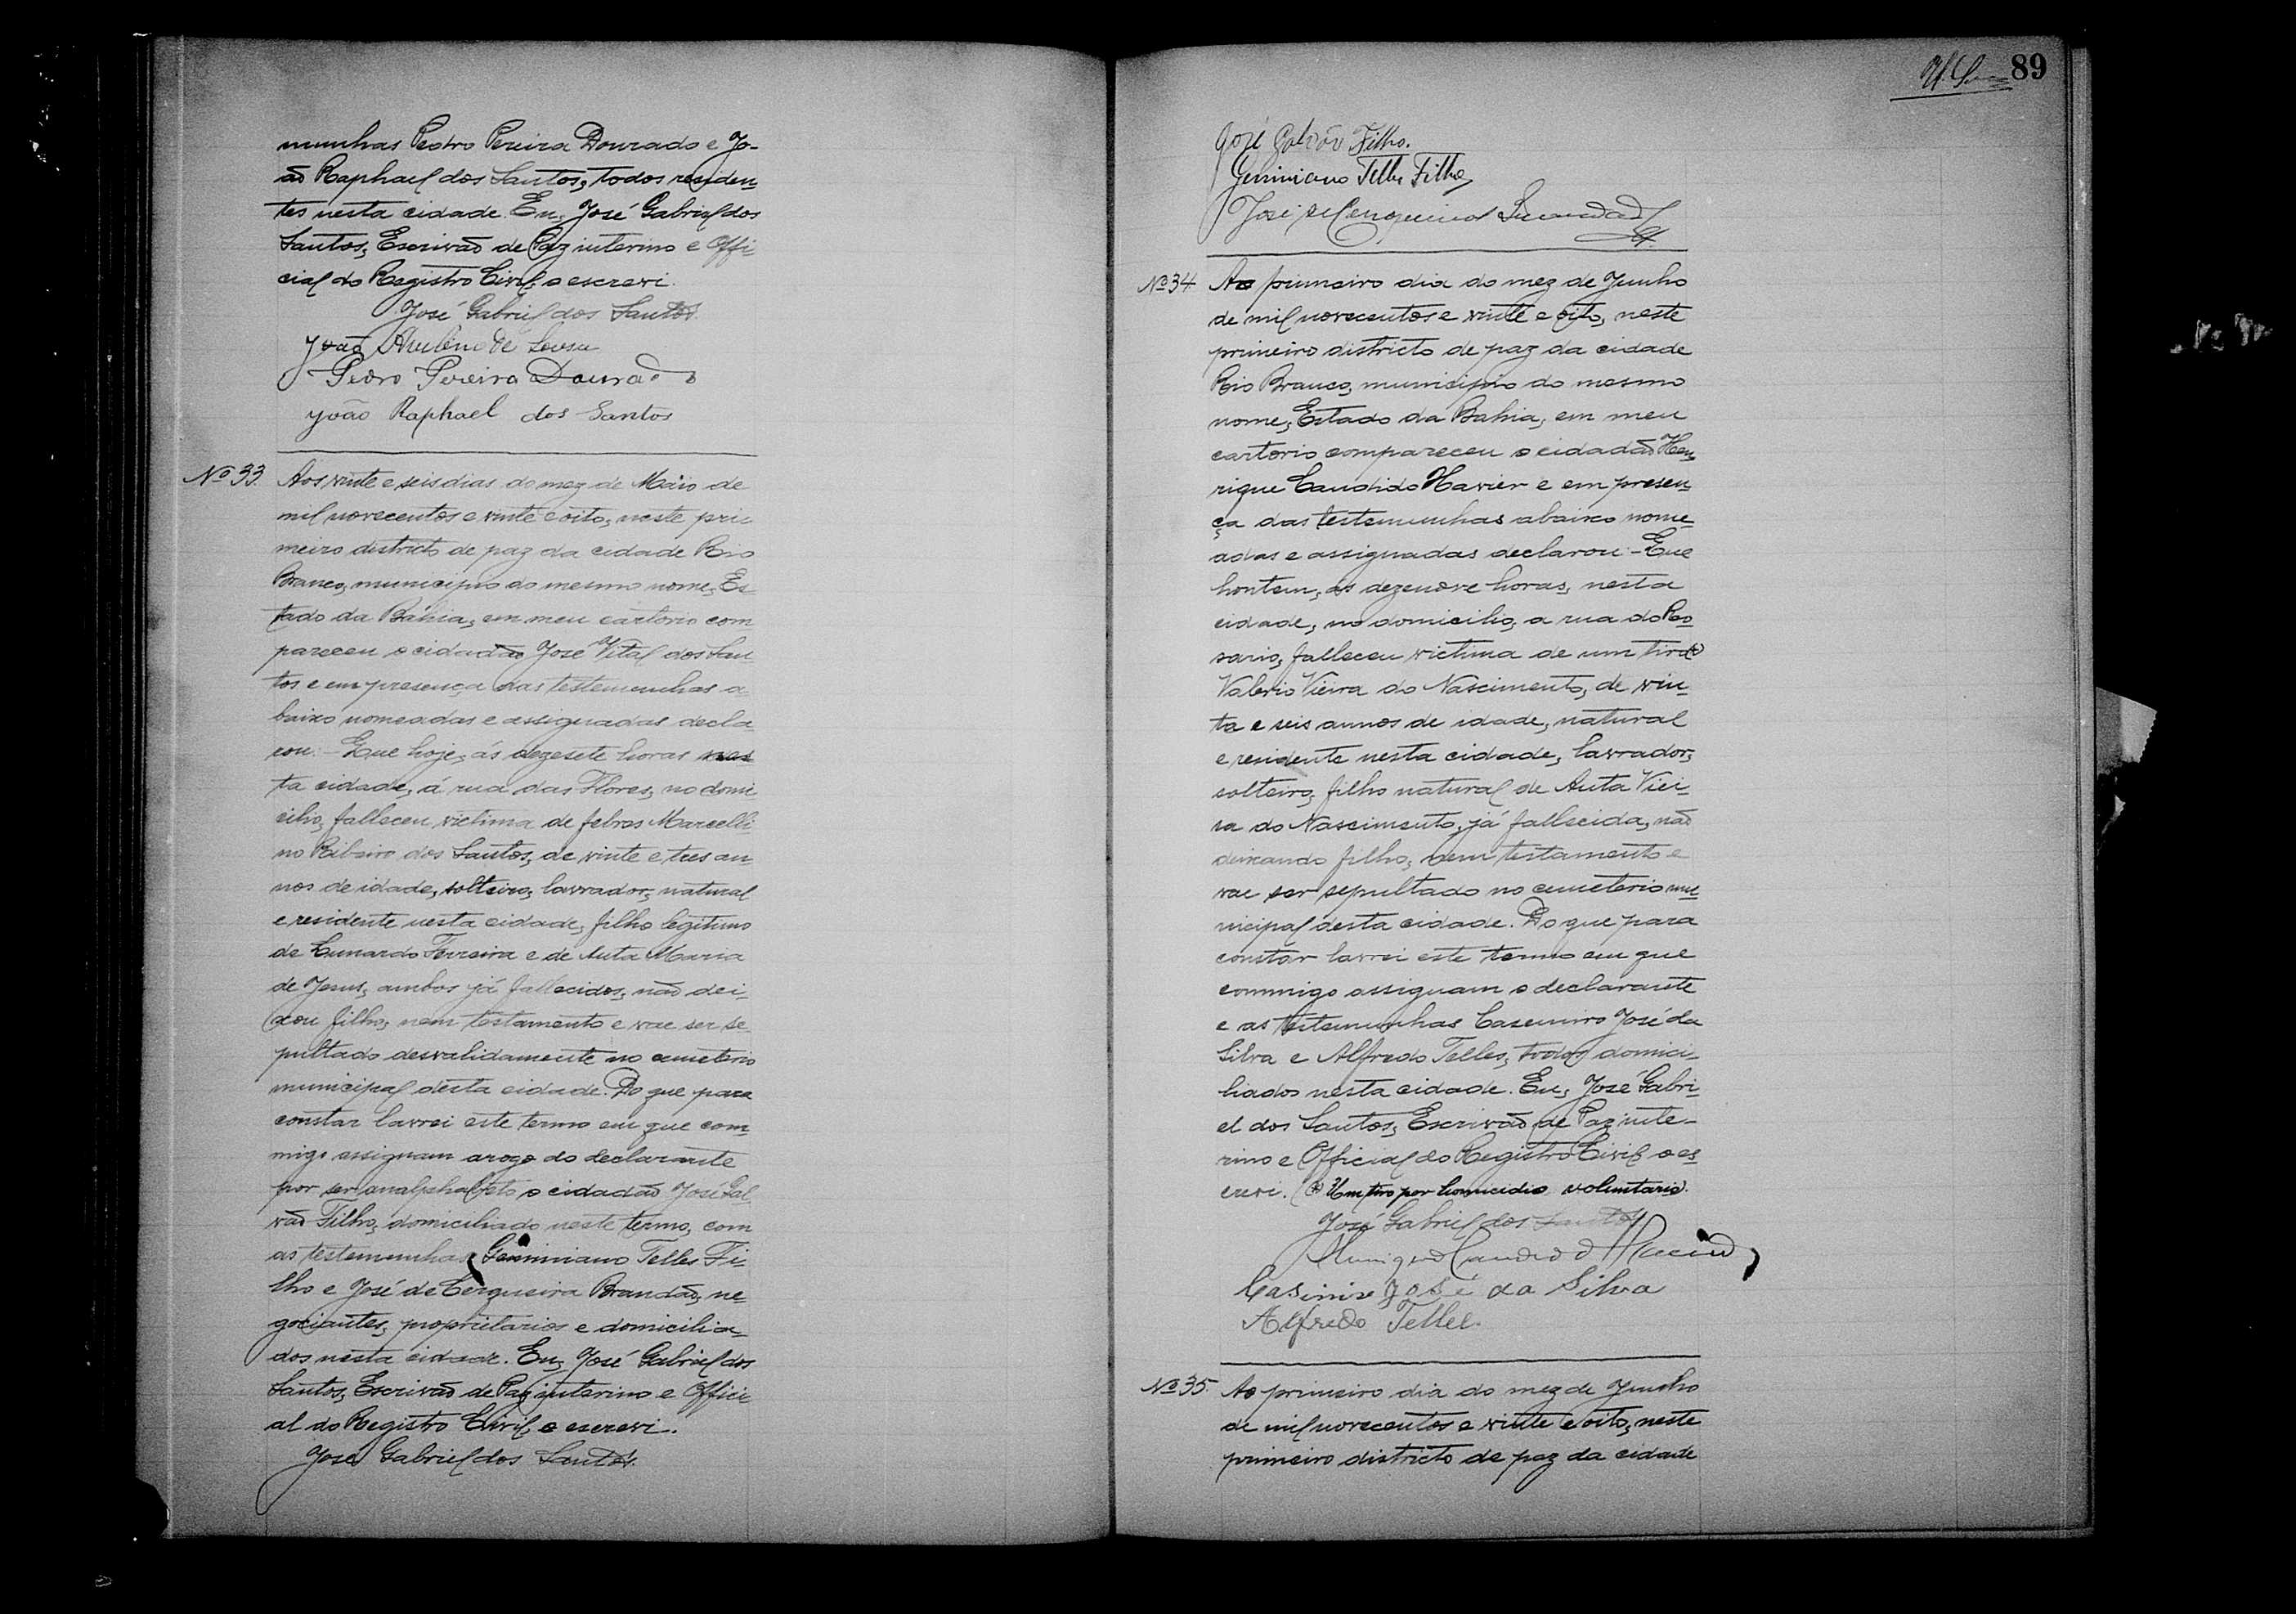 munhas Pedro Pereira Dourado e Jo-
ão Raphael dos Santos, todos residen-
tes nesta cidade. Eu, José Gabriel dos
Santos, Escrivão de Paz interino e Offi-
cial do Registro Civil, o escrevi.
José Gabriel dos Santos.
João de Sousa
Pedro Pereira Dourado
João Raphael dos Santos
Nº 33. Aos vinte e seis dias do mez de Maio de
mil novecentos e vinte e oito, neste pri-
meiro districto de paz da cidade Rio
Branco, municipio do mesmo nome, Es-
tado da Bahia, em meu cartorio com
pareceu o cidadão José Vital dos San
tos e em presença das testemunhas a-
baixo nomeadas e assignadas decla-
rou: - Que hoje, ás dezesete horas nes
ta cidade, á rua das Flores, no domi
cilio, falleceu, victima de febres Marcelli
no Ribeiro dos Santos, de vinte e tres an-
nos de idade, solteiro, lavrador, natural
e residente nesta cidade, filho legitimo
de Ferreira e de Auta Maria
de Jesus, ambos já fallecidos, não dei-
xou filho, nem testamento e vae ser se-
pultado desvalidamente no cemeterio
municipal desta cidade. Do que para
constar lavrei este termo em que com-
migo assignam arogo do declarante
por ser analphabeto o cidadão José Gal
vão Filho, domiciliado neste termo, com
as testemunhas Geminiano Telles Fi-
lho e José de Cerqueira Brandão, ne-
gociantes, proprietarios e domicilia-
dos nesta cidade. Eu, José Gabriel dos
Santos, Escrivão de Paz interino e Offici-
al do Registro Civil, o escrevi.
José Gabriel dos Santos.
89
José Galvão Filho.
Geminiano Telles Filho
José de Cerqueira Brandão
Nº 34 Ao primeiro dia do mez de Junho
de mil novecentos e vinte e oito, neste
primeiro districto de paz da cidade
Rio Branco, municipio do mesmo
nome, Estado da Bahia, em meu
cartorio compareceu o cidadão Hen-
rique Candido Xavier e em presen-
ça das testemunhas abaixo nome-
adas e assignadas declarou: - Que
hontem, ás dezenove horas, nesta
cidade, no domicilio, a rua do Ro-
sario, falleceu victima de um tiro (*)
Valerio Vieira do Nascimento, de vin-
te e seis annos de idade, natural
e residente nesta cidade, lavrador,
solteiro, filho natural de Auta Viei-
ra do Nascimento, já fallecida, não
deixando filho, nem testamento e
vae ser sepultado no cemeterio mu-
nicipal desta cidade. Do que para
constar lavrei este termo em que
commigo assignam o declarante
e as testemunhas Casemiro José da
Silva e Alfredo Telles, todos domici-
liados nesta cidade. Eu, José Gabri-
el dos Santos, Escrivão de Paz inte-
rino e Official do Registro Civil, o es-
crevi. (* Um tiro por homicidio voluntario.
José Gabriel dos Santos.
Henrique Candido Xavier
Casimiro José da Silva
Alfredo Telles.
Nº 35. Ao primeiro dia do mez de Junho
de mil novecentos e vinte e oito, neste
primeiro districto de paz da cidade